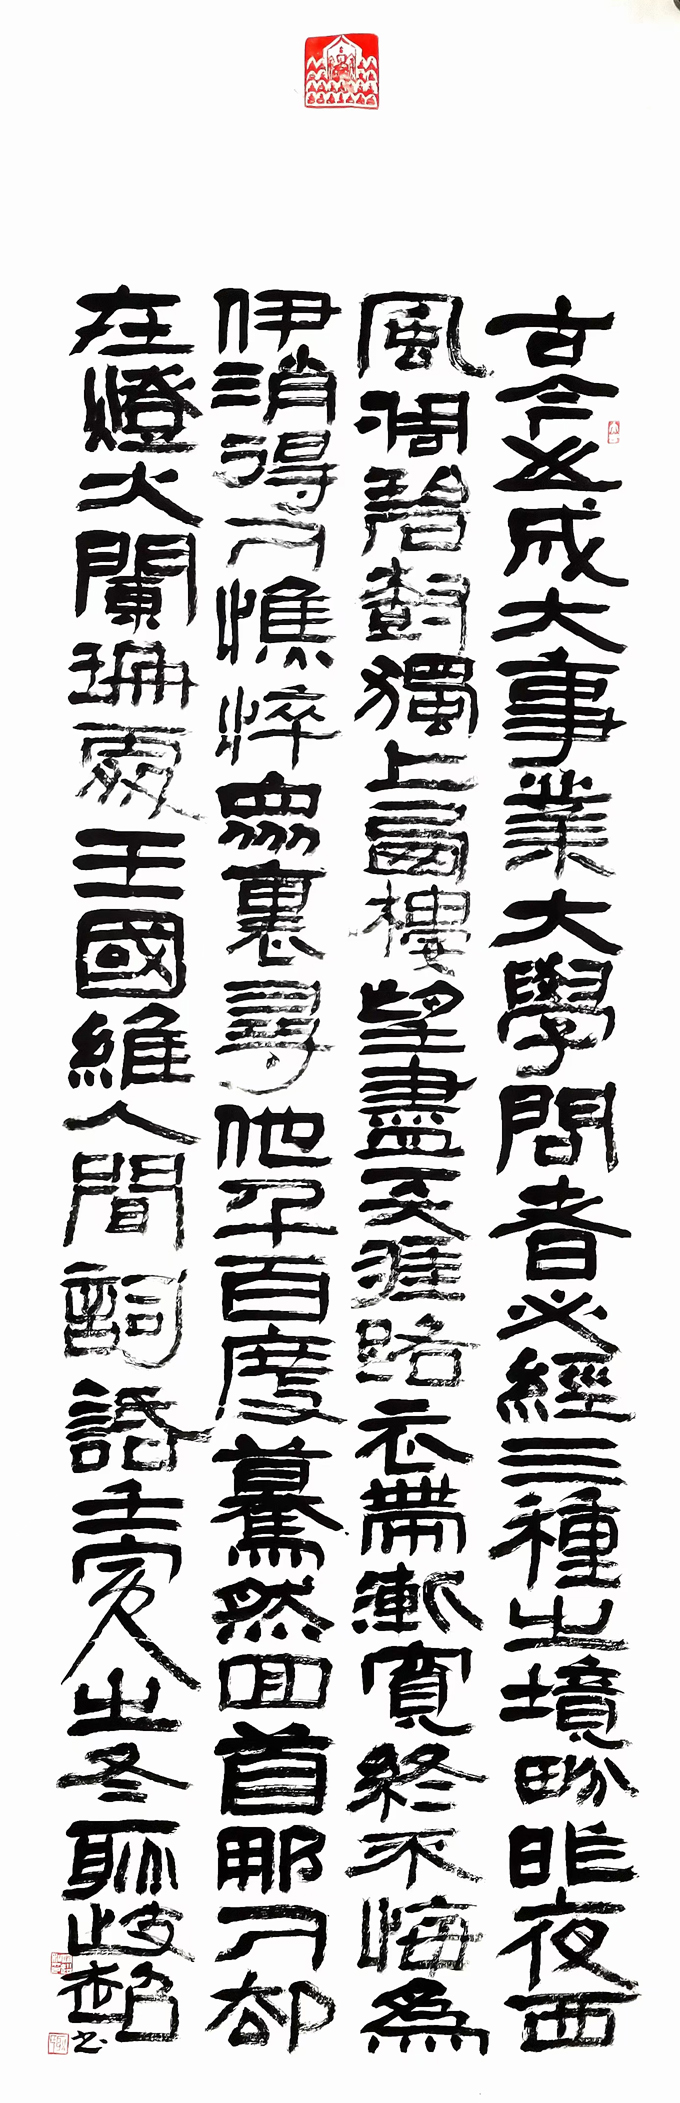 古今之成大事業大學問者必經三種之境畍昨夜西
風凋碧樹獨上高樓望盡天涯路衣帶漸寬終不悔為
伊消得人憔悴眾裏尋他千百度驀然回首那人却
在燈火闌珊處王國維人間詞話壬寅之冬书